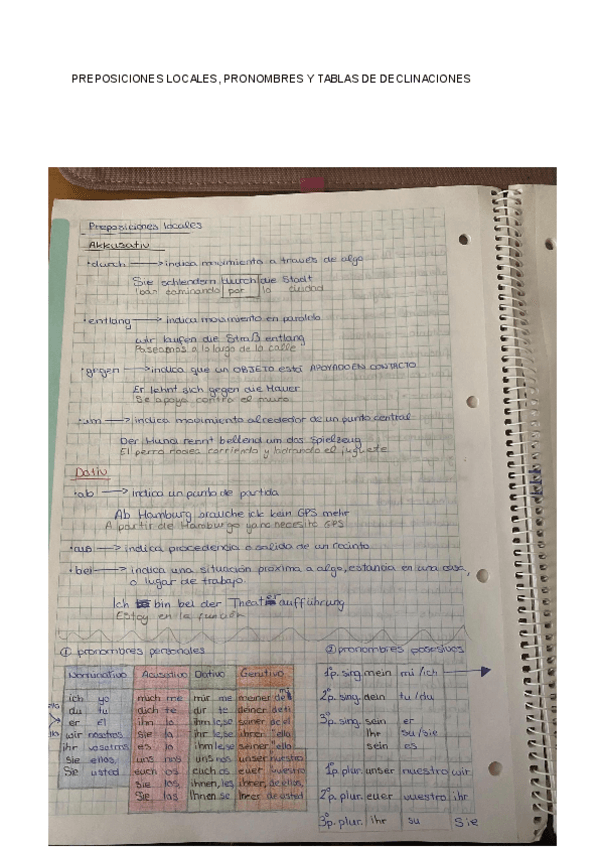 PREPOSICIONES LOCALES, PRONOMBRES Y TABLAS DE DECLINACIONES
Preposiciones locales
Akkusativ
• durch → indica movimiento a través de algo
Sie schlendern durch die Stadt
ciudad
• entlang → indica movimiento en paralelo
wir laufen die Straß entlang
Paseamos a lo largo de la calle
• gegen → indica que un OBJETO está APOYADO EN CONTACTO
Er lehnt sich gegen die Mauer
Se apoya contra el muro
• um → indica movimiento alrededor de un punto central
Der Hund rennt bellend um das Spielzeug
El perro rodea corriendo y ladrando el juguete
Dativ
• ab → indica un punto de partida
Ab Hamburg brauche ich kein GPS mehr
A partir de Hamburgo ya no necesito GPS
• aus → indica procedencia o salida de un recinto
• bei → indica una situación próxima a algo, estancia en una casa,
o lugar de trabajo
Ich bin bei der Theateraufführung
Estoy en la función
① pronombres personales ② pronombres posesivos
Nominativo Acusativo Dativo Genitivo 1ªp. sing mein mi /ich
ich yo mich me mir me meiner de mí
du tu dich te dir te deiner de ti 2ªp. sing. dein tu / du
er él ihn lo ihm le, se seiner de él 3ªp. sing. sein er
wir nosotros sie la ihr le, se ihrer "ella Ihr su / sie
ihr vosotros es lo ihm le, se seiner "ello sein es
Sie ellos uns nos uns nos unser nuestro
Sie usted euch os euch os euer vuestro 1ªp. plur. unser nuestro wir
Sie los ihnen, les ihrer, de ellos 2ªp. plur. euer vuestro ihr
Sie las Ihnen se Ihrer de usted 3ªp. plur. ihr su Sie